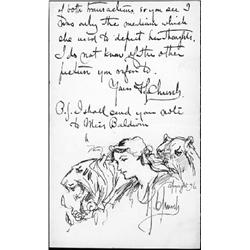 of both transactions so you see I
was only the medium which
she used to depict her thoughts.
I do not know of the other
picture you refer to.
Yours F S Church.
P.S. I shall send your note
to Miss Baldwin
F S Church